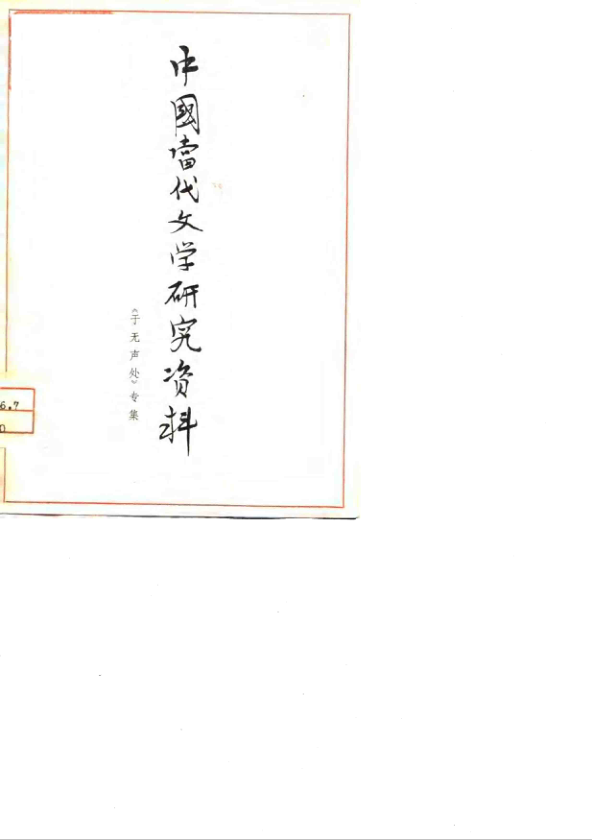 中國當代文学研究资料
《于无声处》专集
6.7
0